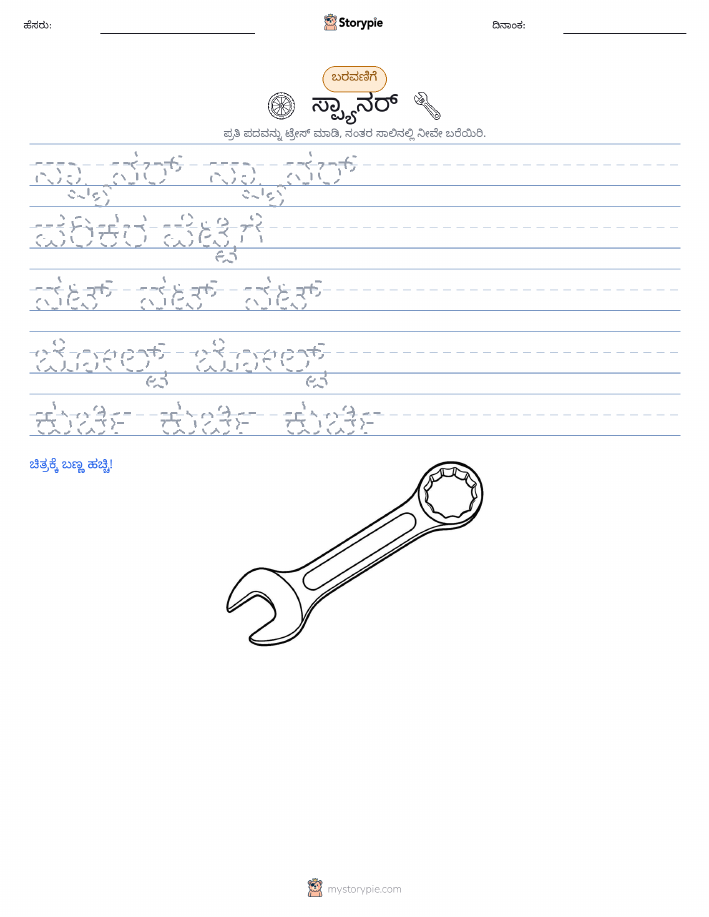 ಹೆಸರು:
Storypie
ದಿನಾಂಕ:
ಬರವಣಿಗೆ
ಸ್ಪ್ಯಾನರ್
ಪ್ರತಿ ಪದವನ್ನು ಟ್ರೇಸ್ ಮಾಡಿ, ನಂತರ ಸಾಲಿನಲ್ಲಿ ನೀವೇ ಬರೆಯಿರಿ.
ಸ್ಪ್ಯಾನರ್ ಸ್ಪ್ಯಾನರ್
ಪರಿಕರ ಪೆಟ್ಟಿಗೆ
ನಟ್ ನಟ್ ನಟ್
ಬೋಲ್ಟ್ ಬೋಲ್ಟ್
ಚಿತ್ರಕ್ಕೆ ಬಣ್ಣ ಹಚ್ಚಿ!
mystorypie.com